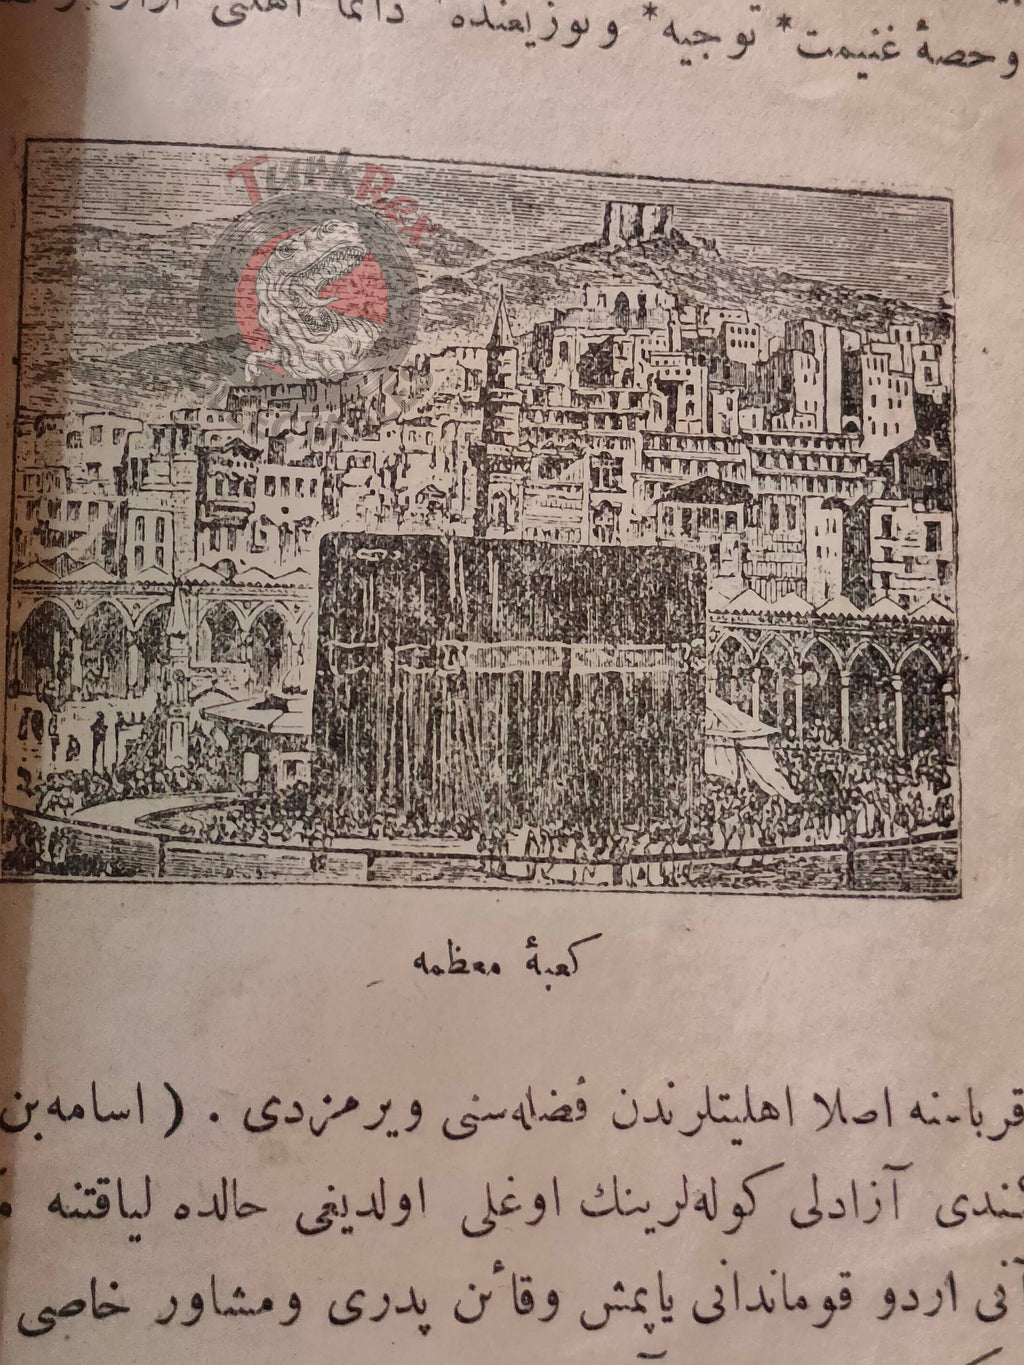 وحصهٔ غنیمت* توجیه* وتوزیعنده دائما اهلنی
TurkRex
كعبهٔ معظمه
قرباسنه اصلا اهلیتلرندن فضله‌سنی ویرمزدی . ( اسامه‌بن
كندی آزادلی كوله‌لرینك اوغلی اولدیغی حالده لیاقتنه
آنی اردو قوماندانی یاپمش وقائن پدری ومشاور خاصی